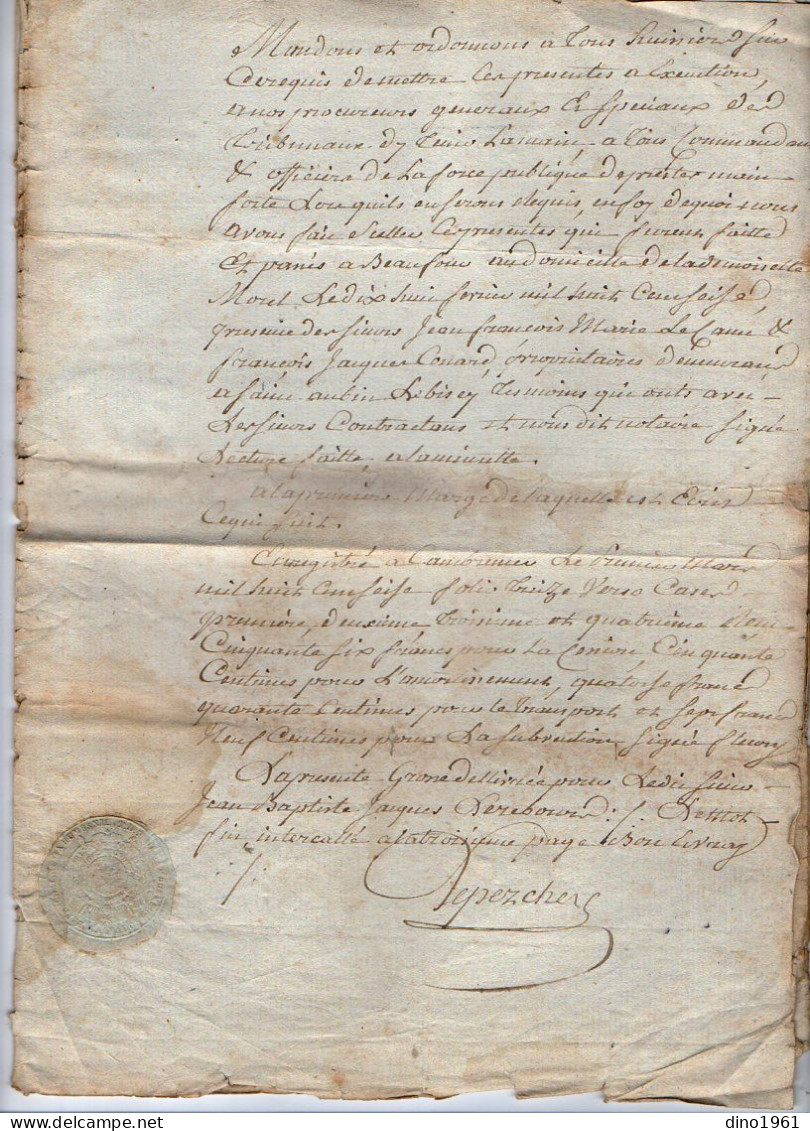 Mandons et ordonnons a tous huissiers sur
Cerequis demettre Ces presentes a Execution,
anos procureurs generaux & speciaux des
tribunaux dy tenir Lamain, a tous Commandans
& officiers de Laforce publique depreter main
forte Lorsquils enseront requis, enfoy dequoi nous
avons fait sceller Cespresentes qui furent faitte
Et passés a Beaufour audomicille delademoiselle
Morel Ledix huit fevrier mil huit Cent seise,
presence des sieurs Jean françois Marie Le Came &
françois Jacques Conard, propriétaires demeurans
a saint aubin Lebisey tesmoins qui onts avec
Les sieurs Contractans et nous dit notaire signé
Lecture faitte, alaminutte.
alapremiere Marge delaquelle est Ecrit
Cequi suit.
Enregistré a Cambremer Le Premier Mars
mil huit Cent seise folio treize Verso Cases
premiere, deuxieme troisieme et quatrieme
Cinquante six francs pour La Cinquante
Centimes pour L'amortissement, quatorse francs
quarante Centimes pour le transport et sept francs
Neuf Centimes pour La subvention signé fleury
La presente Grosse dellivrée pour Ledit sieur
Jean Baptiste Jacques Lerebours ./. Le Mot
intercallé alatroisieme page Bon
./.
Lepezcher
dino1961